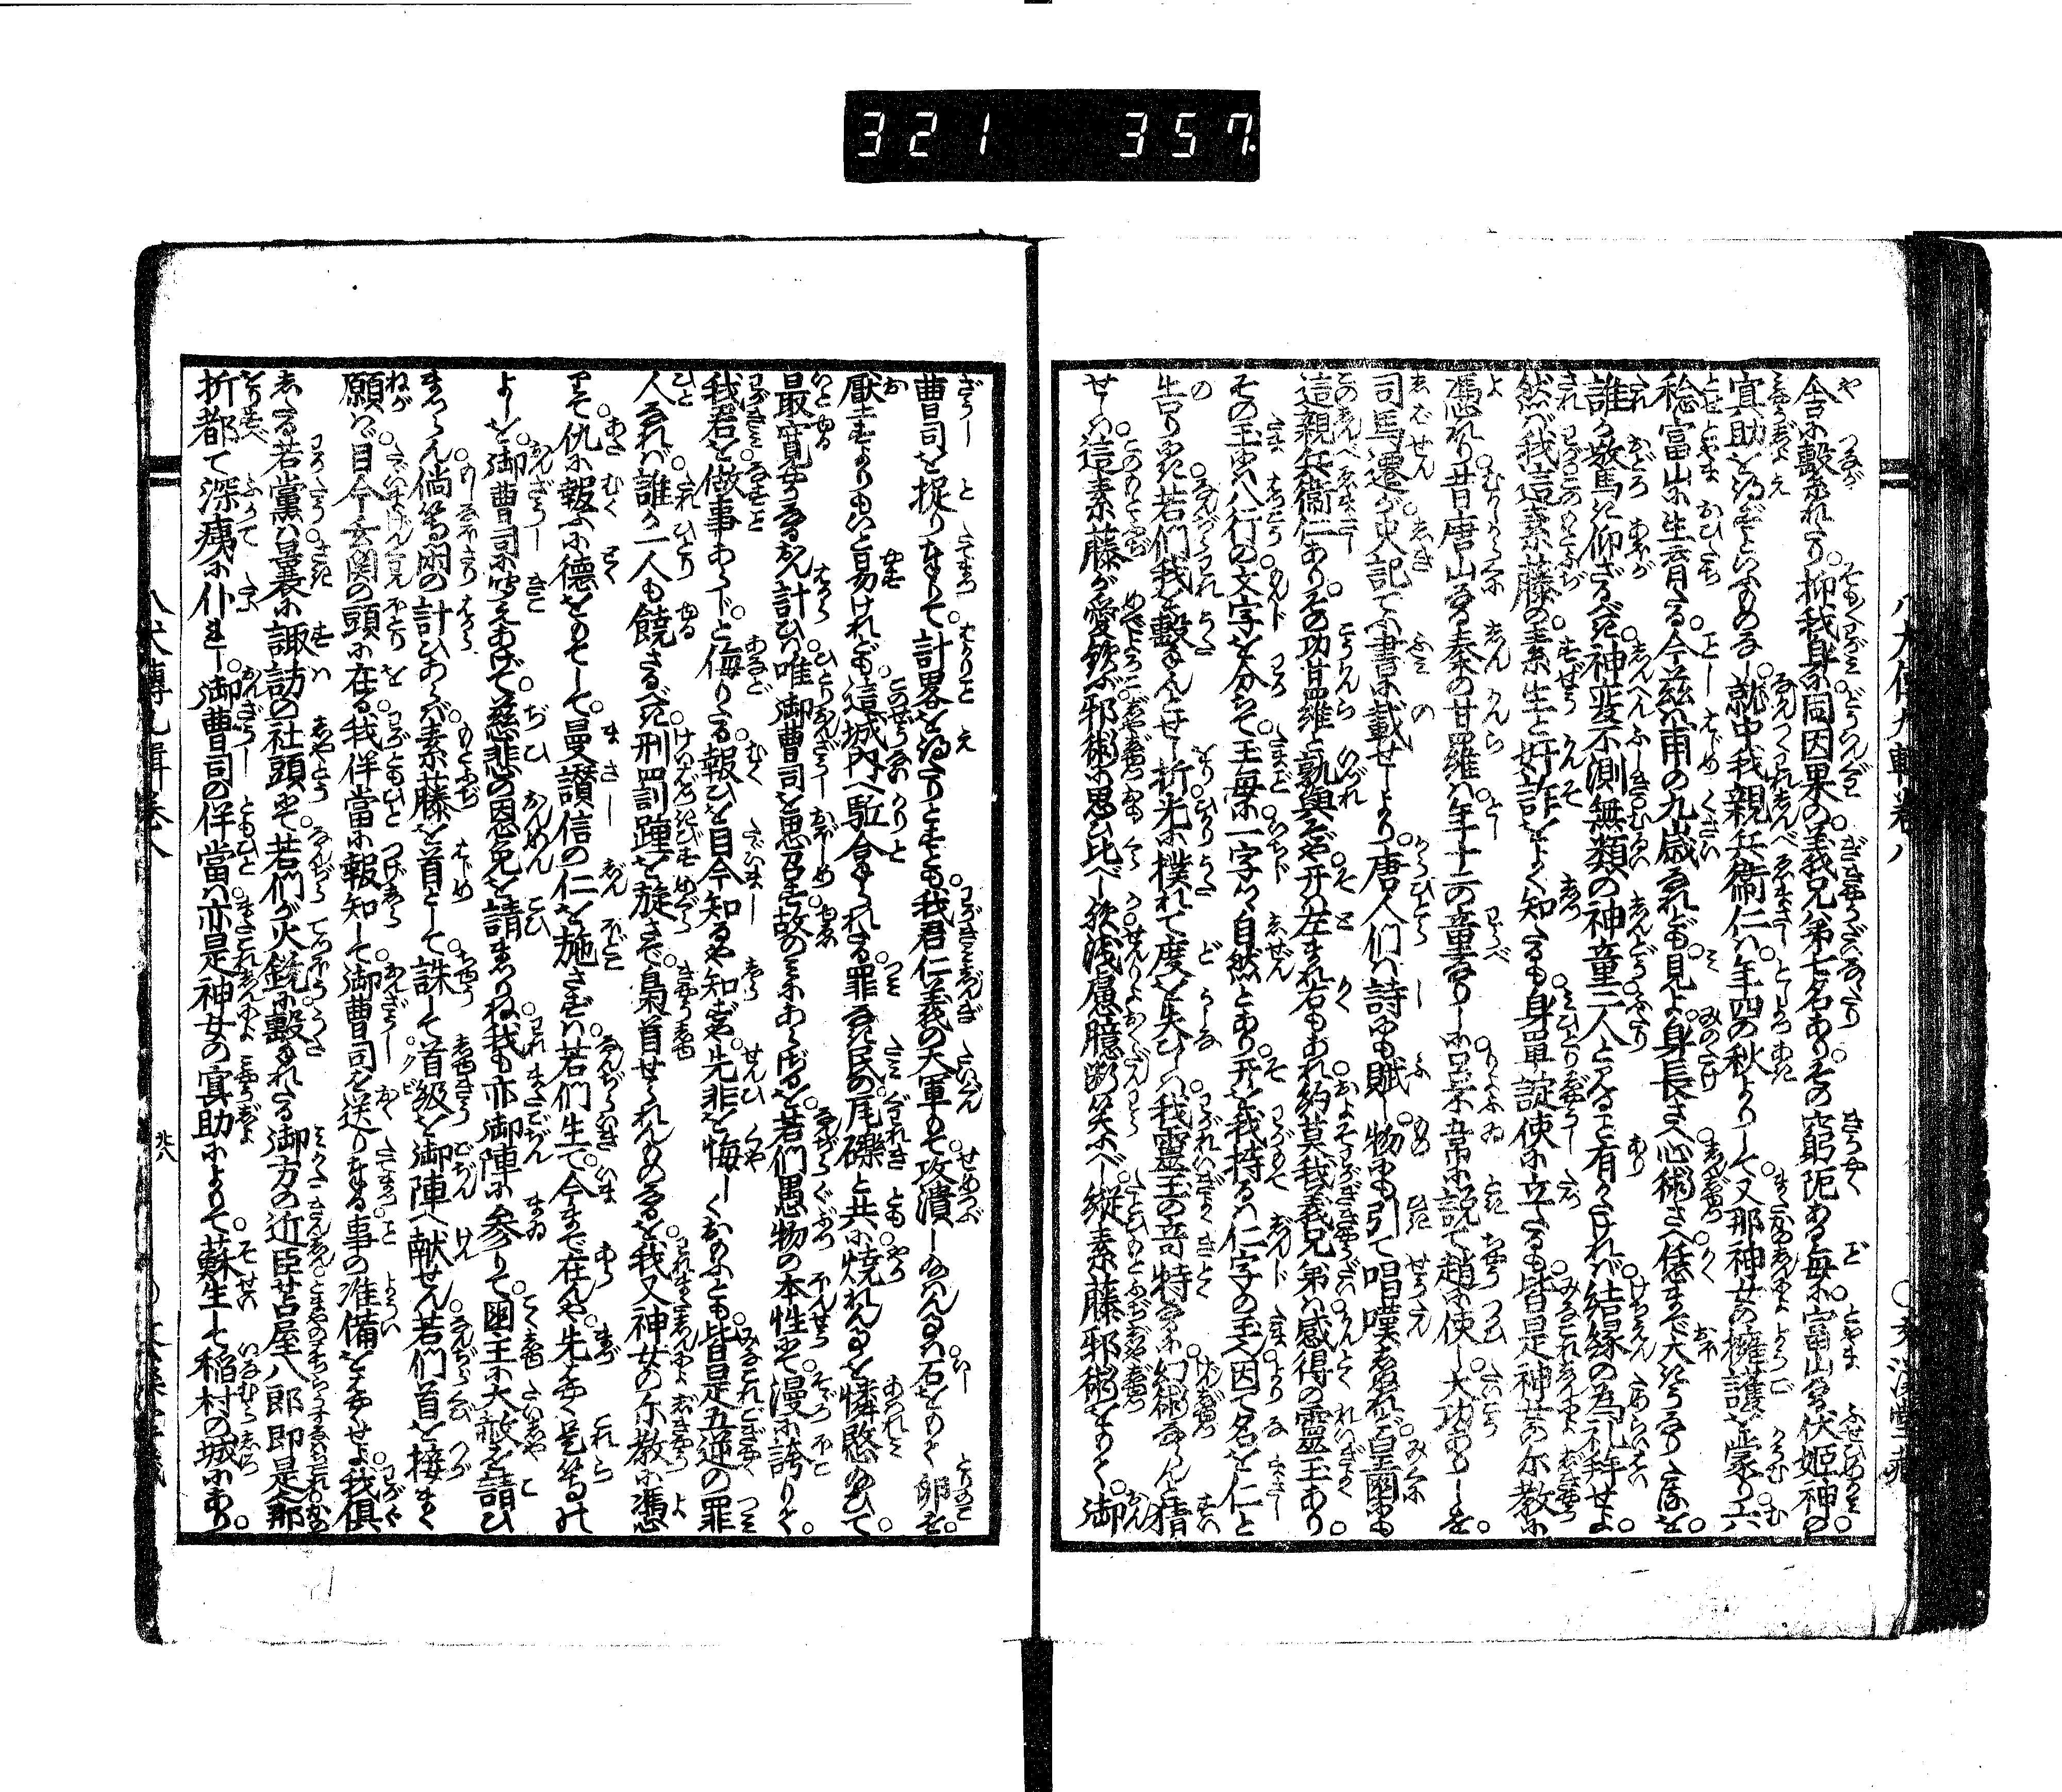 321 357
舎に繋れたり。抑我身に同因果の義兄弟七名あり。その窮阨ある毎に。富山なる伏姫神の。
冥助を得ざといふものなし。就中我親兵衛仁は。年四の秋よりして。又那神女の擁護を蒙り。六
稔富山に生育たる。今茲は甫の九歳なれども。見よ身長さへ心術さへ。恁まで大きうなりたるを。
誰か敬馬き仰ざるべき。神変不測無類の神童。二人とあること有がたければ。結縁の為礼拝せよ。
然ば我這素藤の。素生と奸詐をよく知たるも。身單諚使に立たるも。皆是神女の尓教に
憑れり。昔唐山なる秦の甘羅は。年十二の童なりしに。呂不韋に説て。趙に使し。大功ありしを。
司馬遷が。史記てふ書に載せしより。唐人們は詩にも賦し。物にも引て唱嘆すなれど。皇國にも
這親兵衛仁あり。その功甘羅と孰與ぞや。开は左まれ右もあれ。約莫我義兄弟は。感得の霊玉あり。
その玉には八行の。文字を分ちて。玉毎に。一字々々自然とあり。开を我持るは仁字の玉也。因て名を仁と
告りにき。若們我を撃んとせし。折光に撲れて度を失ひしは。我靈玉の奇特なるに。幻術ならんと猜
せしは。這素藤が愛歓ぶ。邪術に思ひ比べし。淺慮臆断笑ふべし。縦素藤邪術をもて。御
曹司を捉りまゐらせて。計畧を得たりとすとも。我君仁義の大軍もて。攻潰し給はんには。石をもて卵を。
厭すよりもいと易けれども。這城内へ駈合せられたる。罪なき民の。瓦礫と共に。焼れんことを憐愍給ひて。
最寛やかなるおん計ひは。唯御曹司を思召す。故のみにあらざるを。若們愚物の本性もて。漫に誇りて。
我君を。做事あらじと侮りたる。報ひを目今知るや知ずや。先非を悔しく思ふとも。皆是五逆の罪
人なれば。誰か一人も饒さるべき。刑罰踵を旋さで。梟首せられんものなるを。我又神女の尓教に憑
りて。仇に報ふに徳をもてして。曼讃信の仁を施さずは。若們生て今まで在んや。先よく是等の
よしを。御曹司に聞えあげて。慈悲の恩免を請まつりね。我も亦御陣に参りて。國主に大赦を請ひ
まつらん。倘等閑の計ひあらば。素藤を首として。誅して首級を御陣へ献せん。若們首を接まく
願はば。目今玄関の頭に在る。我伴當に報知して。御曹司を送りまゐる。事の准備をよくせよ。我倶
したる若黨は。曩に諏訪の社頭にて。若們が火銃に撃れたる。御方の近臣苫屋八郎。即是那
折都て深痍に仆れし。御曹司の伴當は。亦是神女の冥助によりて。蘇生して稲村の城にあり。
八犬傳九輯卷八